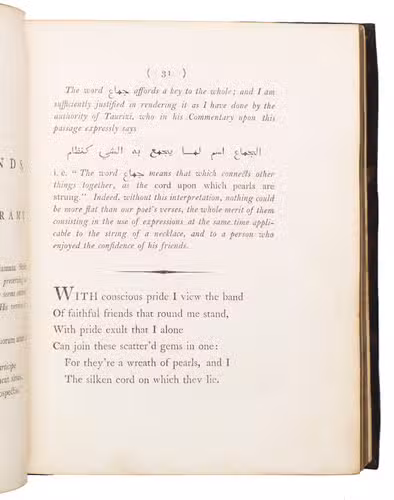 ( 31 )
The word جماع affords a key to the whole; and I am
sufficiently justified in rendering it as I have done by the
authority of Taurizi, who in his Commentary upon this
passage expressly says
الجماع اسم لما يجمع به الشي كنظام
i. e. “ The word جماع means that which connects other
things together, as the cord upon which pearls are
strung.” Indeed, without this interpretation, nothing could
be more flat than our poet's verses, the whole merit of them
consisting in the use of expressions at the same time appli-
cable to the string of a necklace, and to a person who
enjoyed the confidence of his friends.
WITH conscious pride I view the band
Of faithful friends that round me stand,
With pride exult that I alone
Can join these scatter'd gems in one:
For they're a wreath of pearls, and I
The silken cord on which they lie.